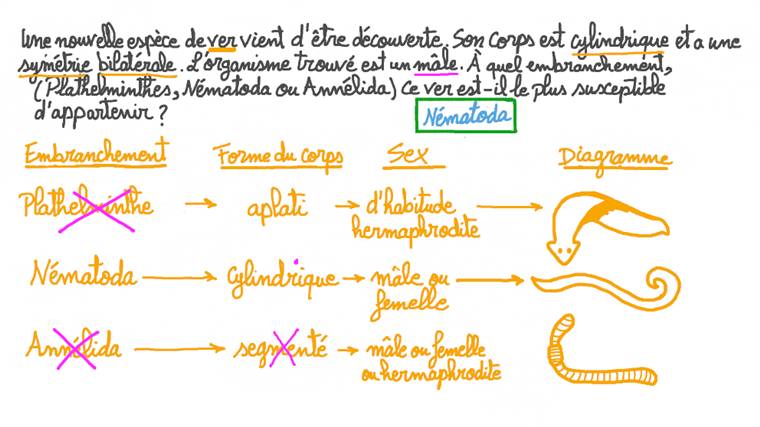 Une nouvelle espèce de ver vient d'être découverte. Son corps est cylindrique et a une
symétrie bilatérale. L'organisme trouvé est un mâle. À quel embranchement,
(Plathelminthes, Nématoda ou Annélida) ce ver est-il le plus susceptible
d'appartenir ? Nématoda
Embranchement Forme du corps Sex Diagramme
Plathelminthe → aplati → d'habitude
hermaphrodite →
Nématoda → cylindrique → mâle ou
femelle →
Annélida → segmenté → mâle ou femelle
ou hermaphrodite